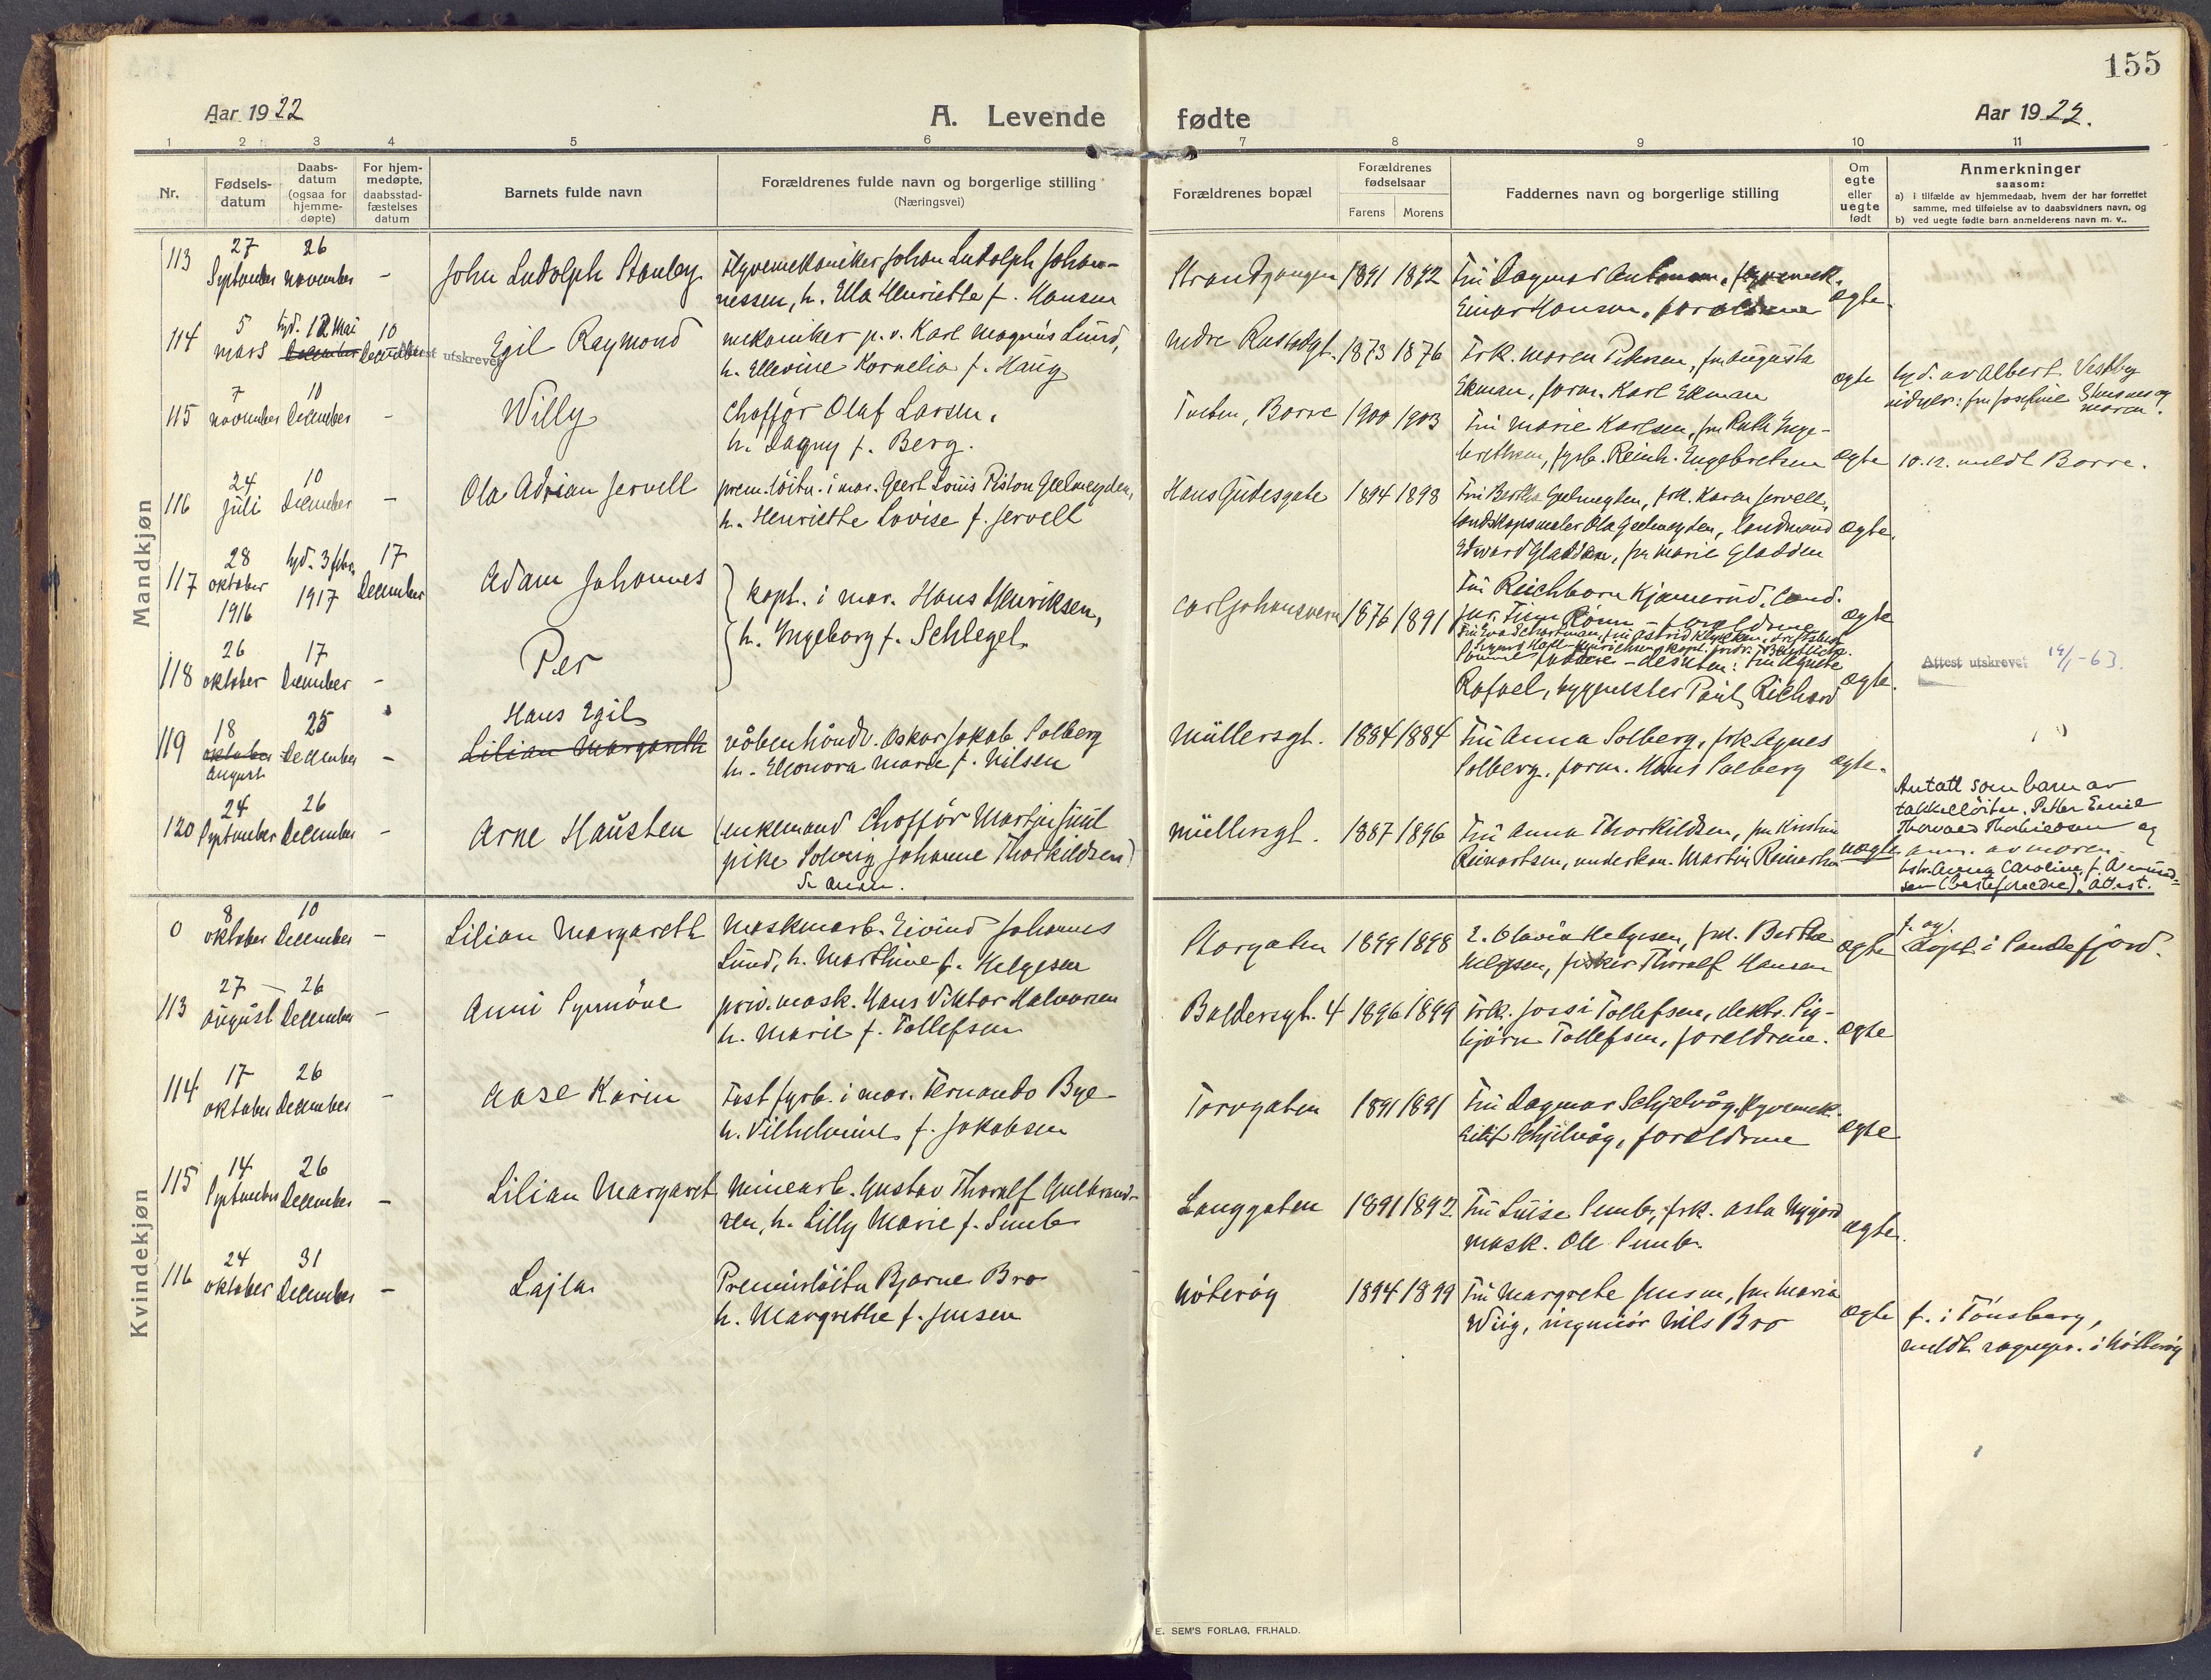 155
Aar 1922
A. Levende fødte
Aar 1922.
1 2 3 4 5 6 7 8 9 10 11
Nr.
Fødsels-
datum
Daabs-
datum
(ogsaa for
hjemme-
døpte)
For hjem-
medøpte,
daabsstad-
fæstelses
datum
Barnets fulde navn
Forældrenes fulde navn og borgerlige stilling
(Næringsvei)
Forældrenes bopæl
Forældrenes
fødselsaar
Farens Morens
Faddernes navn og borgerlige stilling
Om
egte
eller
uegte
født
Anmerkninger
saasom:
a) i tilfælde av hjemmedaab, hvem der har forrettet
samme, med tilføielse av to daabsvidners navn, og
b) ved uegte fødte barn anmelderens navn m. v..
Mandkjøn
113
27
September
26
november
-
John Ludolph Stanley
Flyvemekaniker Johan Ludolph Johan-
nessen, h. Ella Henriette f. Hansen
Strandgangen 1891 1892
Fru Dagmar
Einar Hansen, forældrene
ægte.
114
5
mars
hjd. 12 Mai
December
10
December
Attest utskrevet
Egil Raymond
mekaniker p.v. Karl Magnus Lund,
h. Ellevine Kornelia f. Haug
nedre 1873 1876
Frk. Maren Petersen, fru Augusta
Ekman, form. Karl Ekman
ægte
hjd. av Albert Vestby
vidner: fru Josefine og
moren.
115
7
november
10
December
-
Willy
Chafför Olaf Larsen,
h. Dagny f. Berg.
Borre 1900 1903
Fru Marie Karlsen, fru Ruth Enge-
brethsen, fyrb. Reinh. Engebretsen
ægte
10.12. meldt Borre.
116
24
juli
10
December
-
Ola Adrian Jervell
prem.löitn. i mar. Geert Louis Piston Geelmeyden,
h. Henriette Lovise f. Jervell
Hans Gudesgate 1894 1898
Fru Bertha Geelmeyden, frk. Karen Jervell,
landskapsmaler Ola Geelmeyden, landmand
Edward Gladden, fru Marie Gladden
ægte.
117
28
oktober
1916
hjd. 3 febr.
1917
17
December
Adam Johannes
kapt. i mar. Hans Henriksen,
h. Ingeborg f. Schlegel
Carljohansvern 1876 1891
Fru Reichborn Kjennerud, Cand.
jur.
ægte
118
26
oktober
17
December
-
Per
Samme faddere - desuten: Fru Agnete
Rafael, byggmester Paul Richard
ægte.
Attest utskrevet 14/1-63.
119
18
oktober
august
25
December
-
Hans Egil
Lilian Margareth
våbenhåndv. Oskar Jakob Solberg
h. Eleonora Marie f. Nilsen
Müllersgt. 1884 1884
Fru Anna Solberg, frk. Agnes
Solberg, form. Hans Solberg
ægte.
120
24
September
26
December
-
Arne Hausten
(enkemand Chafför Martin Juul
pike Solveig Johanne Thorkildsen)
Se anm.
Müllersgt. 1887 1896
Fru Anna Thorkildsen, fru Kristine
Reinartsen, underkan. Martin Reinartsen
uægte
Antatt som barn av
takkelløitn. Petter Emil
Thorvald Thorkildsen og
anm. av moren.
hstr. Anna Caroline f. Asmund-
sen (besteforeldre). Attest.
Kvindekjøn
0
8
oktober
10
December
-
Lilian Margareth
Maskinarb. Eivind Johannes
Lund, h. Marthine f. Helgesen
Storgaten 1899 1898
E. Olavia Helgesen, frk. Berthe
Helgesen, fisker Thoralf Hansen
ægte
f. og
döpt i Sandefjord.
113
27
august
26
December
-
Anni Synnöve
priv. mask. Hans Viktor Halvorsen
h. Marie f. Tollefsen
Baldersgt. 4 1896 1899
Frk. Jossi Tollefsen, elektr. Sig-
björn Tollefsen, foreldrene.
ægte
114
17
oktober
26
December
-
Aase Karin
Fast fyrb. i mar. Fernando Bye
h. Vilhelmine f. Jakobsen
Torvgaten 1891 1891
Fru Dagmar Schjelvåg, flyvemek.
Eilif Schjelvåg, foreldrene
ægte
115
14
September
26
December
-
Lilian Margaret
Minearb. Gustav Thoralf Gulbrand-
sen, h. Lilly Marie f. Sumb
Langgaten 1891 1892
Fru Luise Sumb, frk. Asta Nygård
mask. Ole Sumb.
ægte.
116
24
oktober
31
December
-
Lajla
Premierlöitn Bjarne Bro
h. Margrethe f. Jensen
Nöteröy 1894 1899
Fru Margrete Jensen, fru Maria
Wiig, ingeniör Nils Bro
ægte
f. i Tönsberg,
meldt sognepr. i Nötteröy
E. SEM'S FORLAG, FR.HALD.